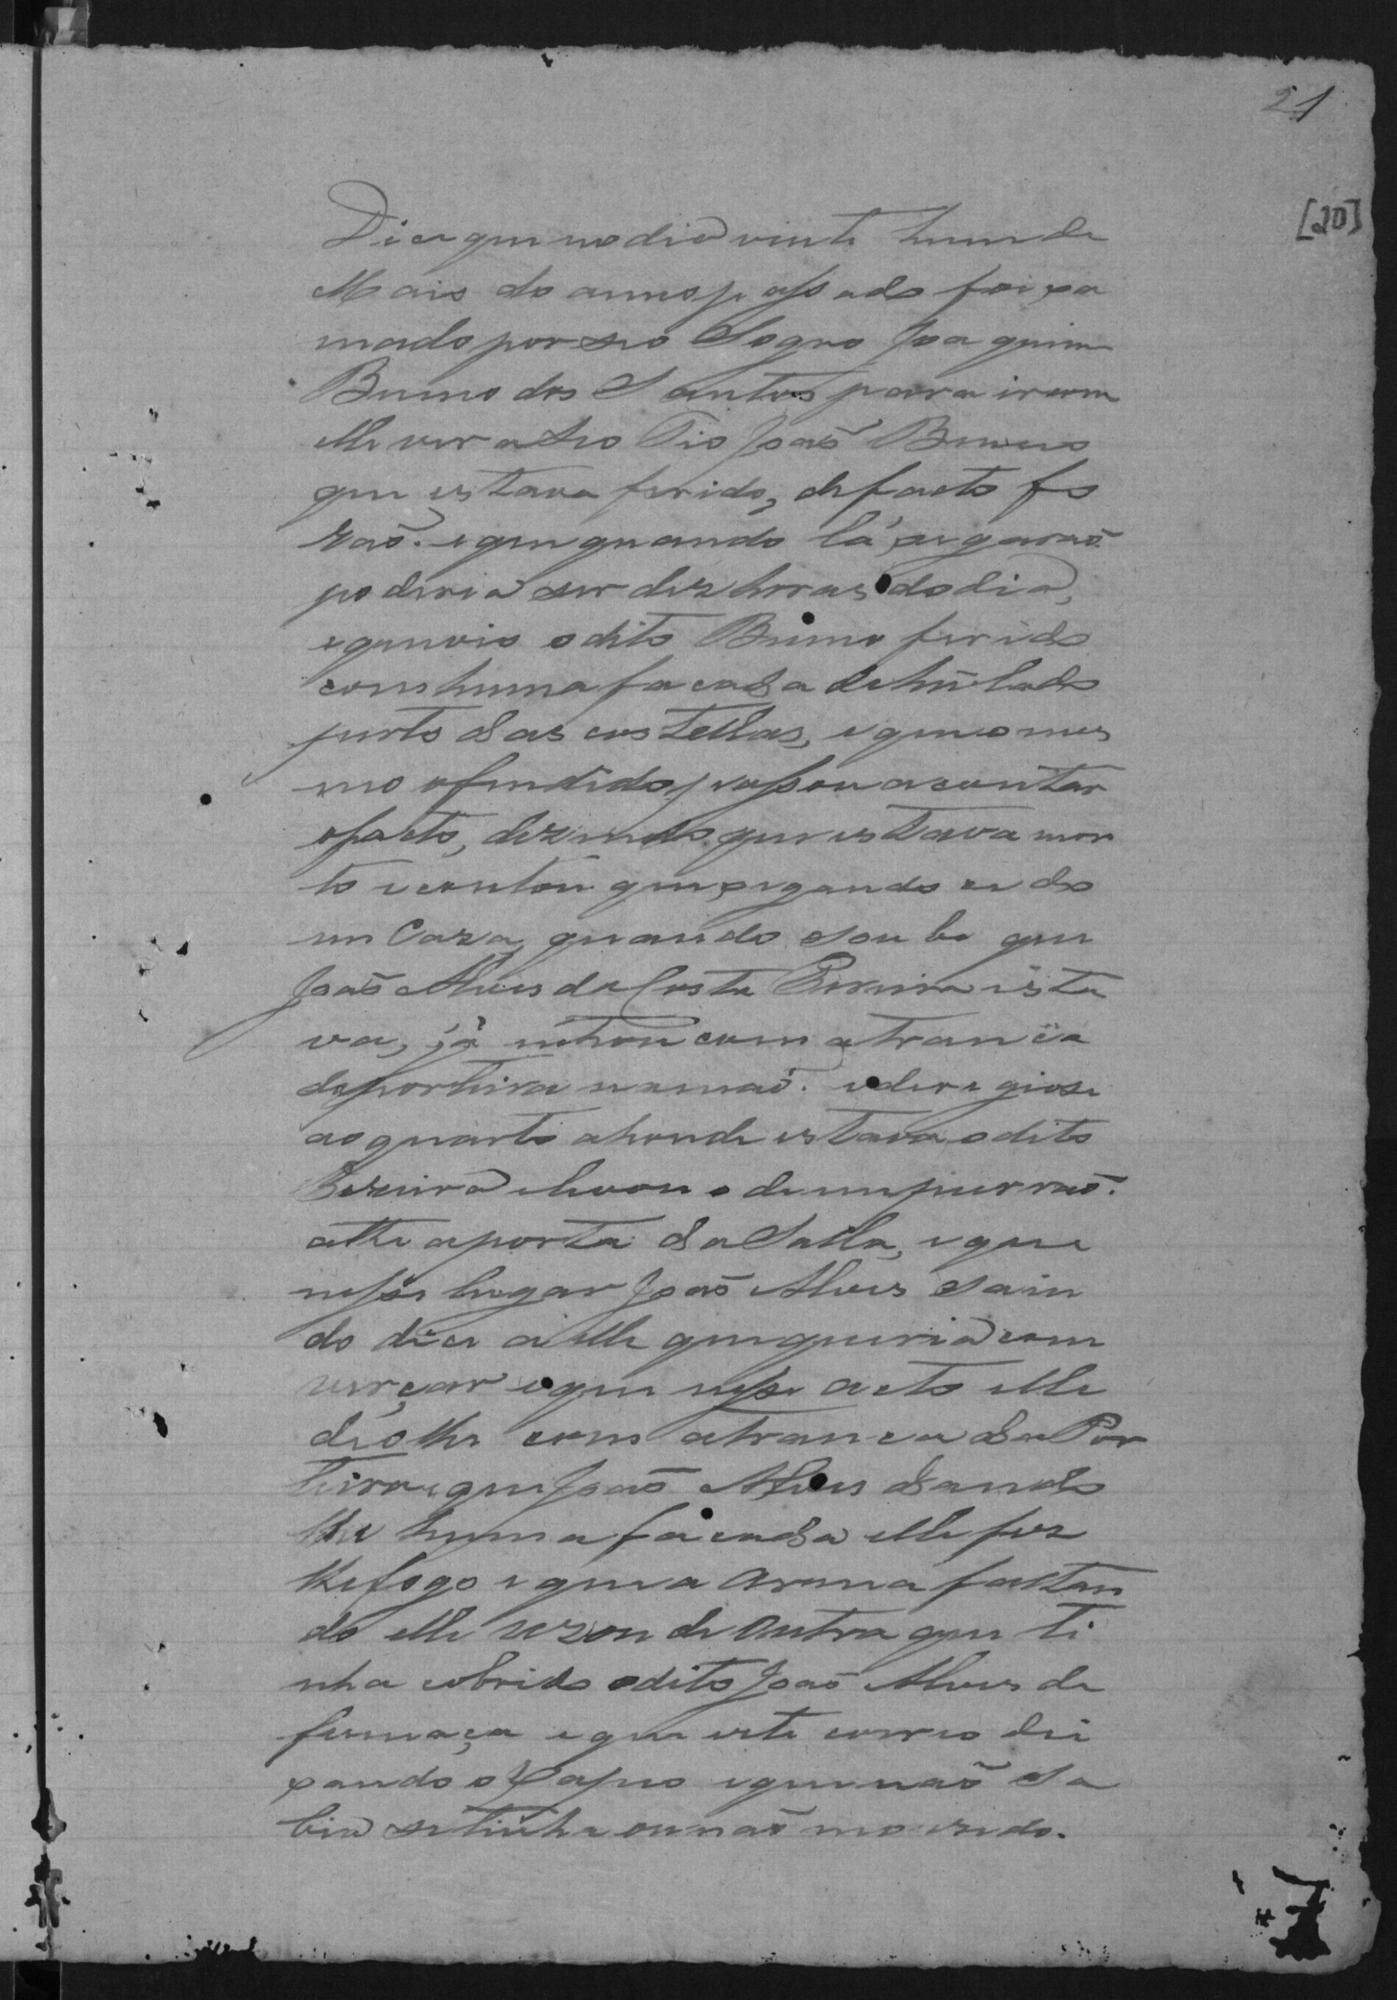 21
[20]
Dice que no dia vinte hum de
Maio do anno passado foi xa
mado por seo Sogro Joaquim
Bueno dos Santos para ir com
elle ver a seo Tio João Bueno
que estava ferido, de facto fo
rão. e que quando lá xegarão
poderia ser dez horas do dia,
e que vio o dito Bueno ferido
com huma facada de hũ lado
perto das costellas, e que o mes
mo ofendido passou a contar
o facto, dizendo que estava mor
to e contou que xegando cedo
em Caza, quando soube que
João Alves da Costa Bezerra esta
va, já entrou com a tranca
da porteira na mão. e deregiose
ao quarto ahonde estava o dito
Bezerra e levou o de empurrão.
athe a porta da Salla, e que
nesse lugar João Alves sain
do dice a elle que queria com
verçar e que nesse acto elle
deo lhe com a tranca da Por
teira e que João Alves dando
lhe huma facada elle fez
lhe fogo e que a arma faltan
do elle uzou de outra que ti
nha cobrido o dito João Alves de
fumaça e que este correo dei
xando o Xapeo e que não sa
bia se tinha ou não morrido.